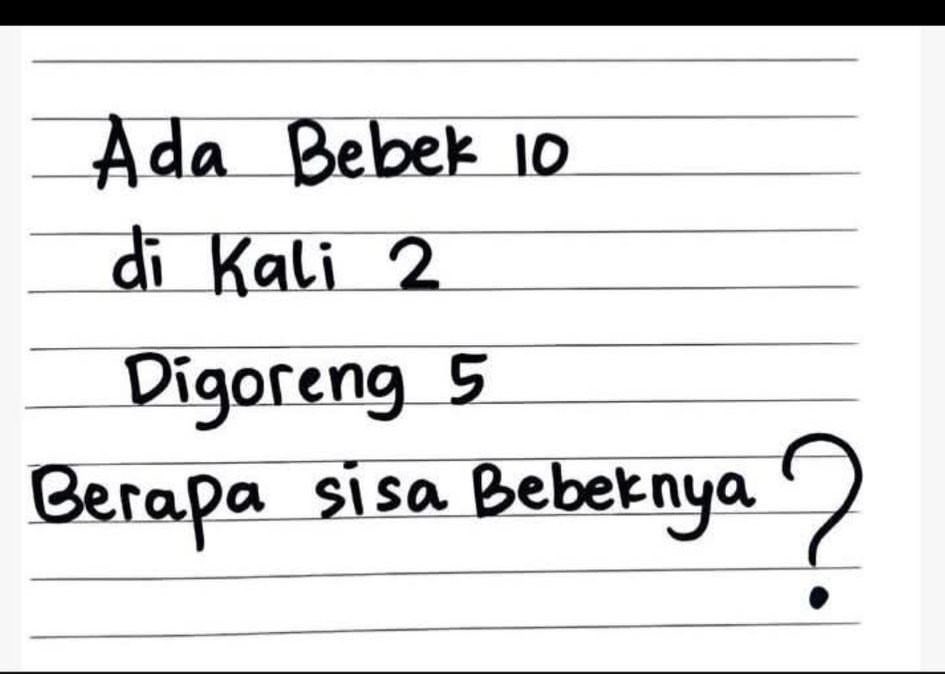 Ada Bebek 10
di Kali 2
Digoreng 5
Berapa sisa Bebeknya ?